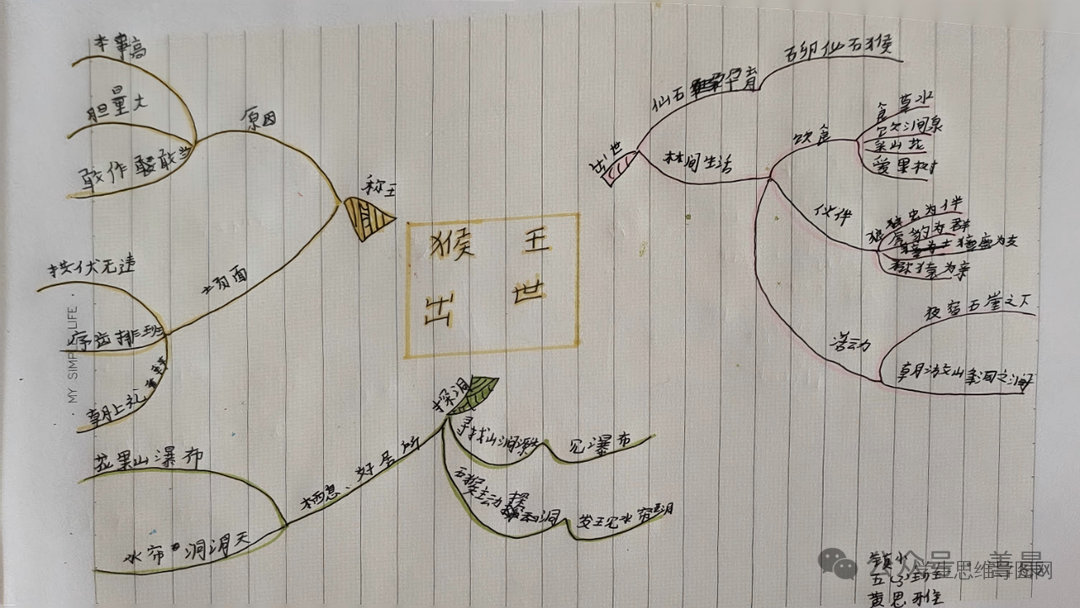 猴王
出世
出世
仙石孕育
石卵化石猴
林间生活
饮食
食草木
饮涧泉
采山花
觅果树
伙伴
狼虫为伴
虎豹为群
獐鹿为友
猕猿为亲
活动
夜宿石崖之下
朝游峰洞之
探洞
寻找山涧源头
见瀑布
石猴主动探洞
发现水帘洞
栖息、好居所
花果山瀑布
水帘洞洞天
称王
原因
本事高
胆量大
敢作敢当
场面
拱伏无违
序齿排班
朝上礼拜
MY SIMPLE LIFE
公众号·善最
学生思维导图网